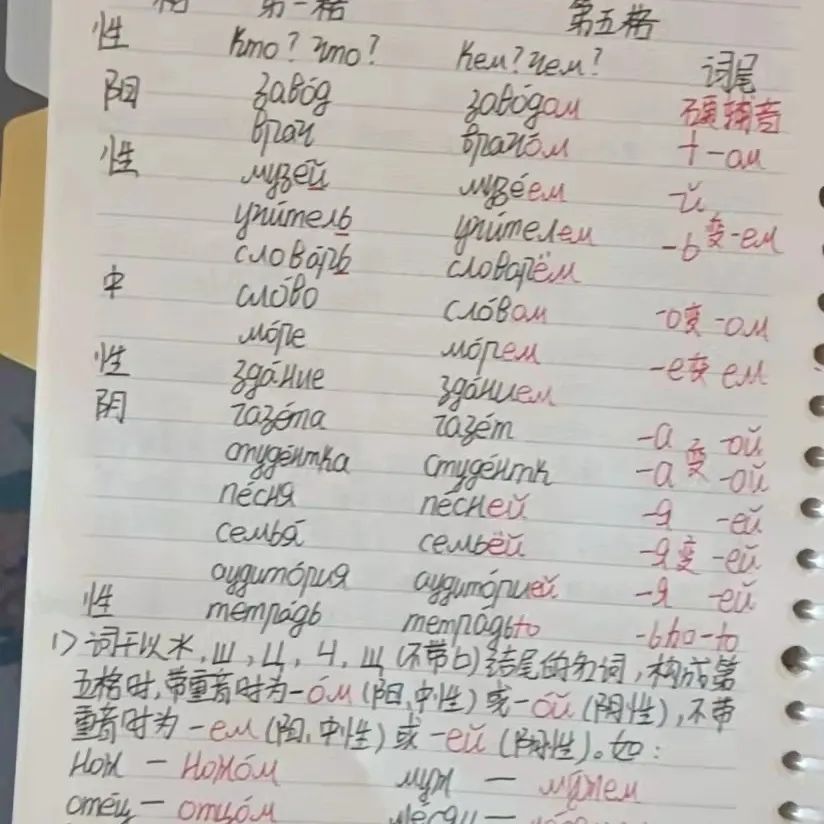 格 第一格 第五格
性 Кто? Что? Кем? Чем? 词尾
阳 заво́д заво́дом 硬辅音
врач врачо́м +-ом
性 музе́й музе́ем -й
учи́тель учи́телем -ь变-ем
слова́рь словарём
中 сло́во сло́вом -о变-ом
мо́ре мо́рем -е变ем
性 зда́ние зда́нием
阴 газе́та газе́т -а 变 -ой
студе́нтка студе́нтк -а -ой
пе́сня пе́сней -я -ей
семья́ семьёй -я变-ей
аудито́рия аудито́рией -я -ей
性 тетра́дь тетра́дью -ью
1) 词干以ж,ш,ц,ч,щ(不带ь)结尾的名词,构成第
五格时,带重音时为-о́м(阳,中性)或-о́й(阴性),不带
重音时为-ем(阳,中性)或-ей(阴性)。如:
нож — ножо́м муж — му́жем
оте́ц — отцо́м ме́сяц —